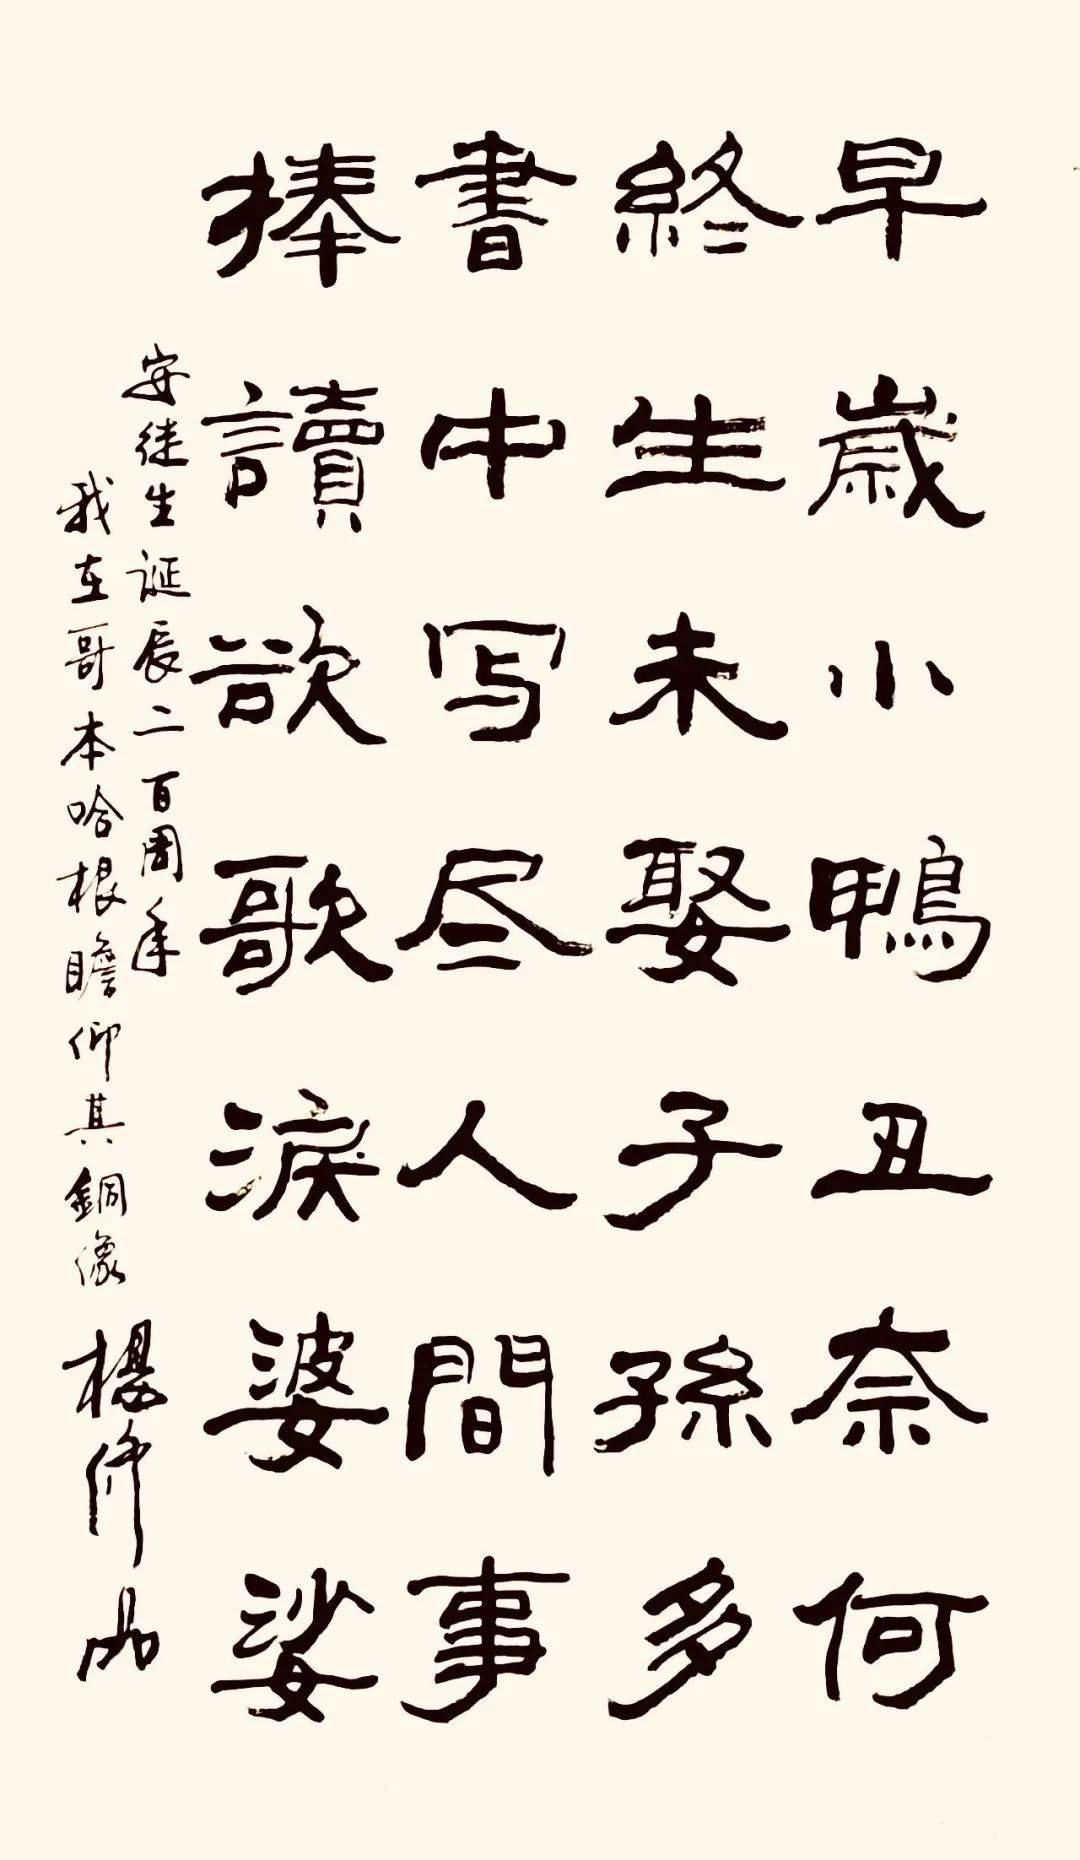 早歲小鴨丑奈何
終生未娶子孫多
書中写尽人間事
捧讀欲歌淚婆娑
安徒生誕辰二百周年
我在哥本哈根瞻仰其銅像